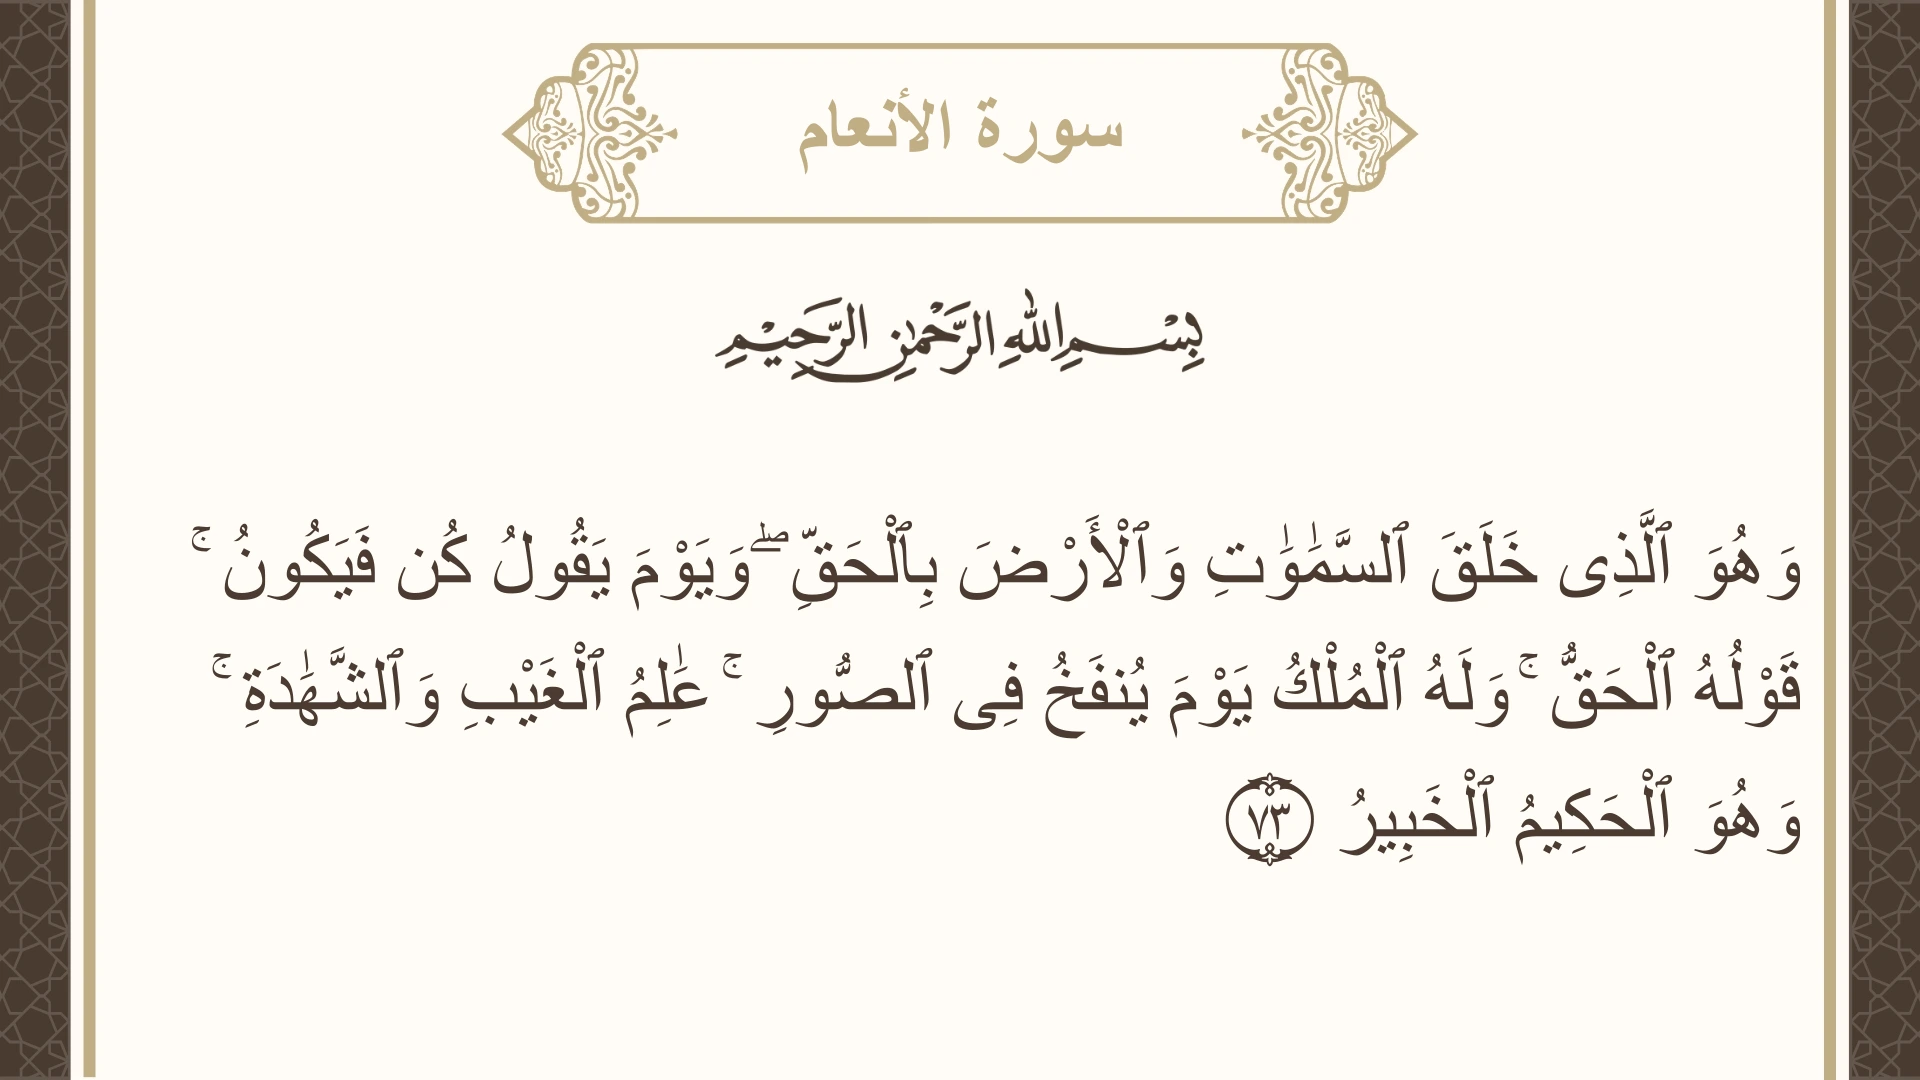 سورة الأنعام
بِسْمِ اللهِ الرَّحْمٰنِ الرَّحِيْمِ
وَهُوَ ٱلَّذِى خَلَقَ ٱلسَّمَٰوَٰتِ وَٱلْأَرْضَ بِٱلْحَقِّ ۖ وَيَوْمَ يَقُولُ كُن فَيَكُونُ ۚ
قَوْلُهُ ٱلْحَقُّ ۚ وَلَهُ ٱلْمُلْكُ يَوْمَ يُنفَخُ فِى ٱلصُّورِ ۚ عَٰلِمُ ٱلْغَيْبِ وَٱلشَّهَٰدَةِ ۚ
وَهُوَ ٱلْحَكِيمُ ٱلْخَبِيرُ ٧٣